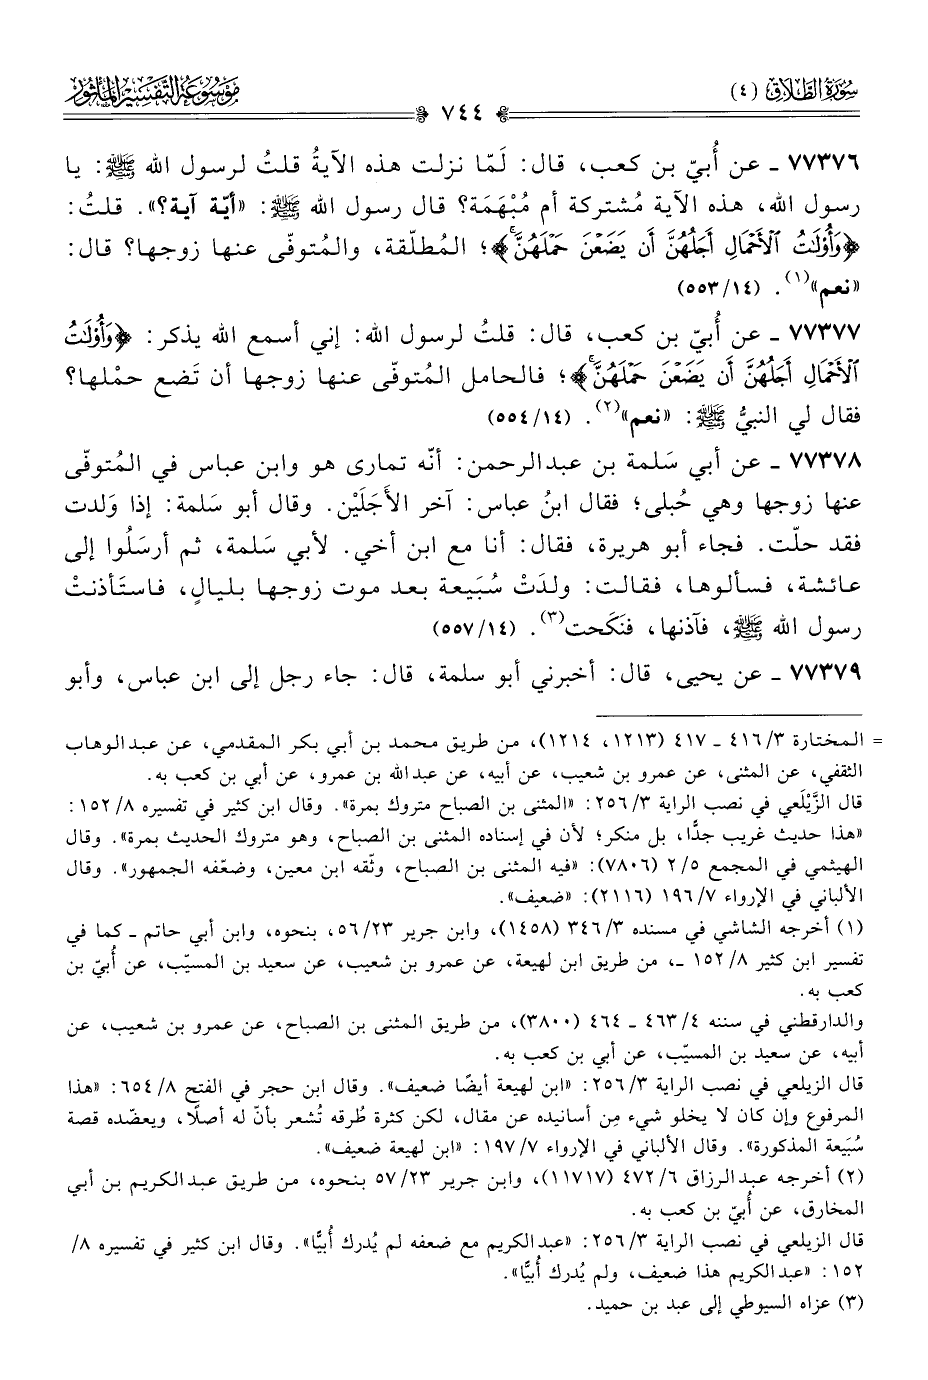 سورة الطلاق (٤)
موسوعة التفسير المأثور
٧٤٤
٧٧٣٧٦ ـ عن أُبيّ بن كعب، قال: لَمّا نزلت هذه الآيةُ قلتُ لرسول الله ﷺ: يا
رسول الله، هذه الآية مُشتركة أم مُبْهَمَة؟ قال رسول الله ﷺ: «أيّة آية؟». قلتُ:
﴿وَأُوْلَٰتُ ٱلْأَحْمَالِ أَجَلُهُنَّ أَن يَضَعْنَ حَمْلَهُنَّۚ﴾؛ المُطلّقة، والمُتوفّى عنها زوجها؟ قال:
«نعم»(١). (١٤/٥٥٣)
٧٧٣٧٧ ـ عن أُبيّ بن كعب، قال: قلتُ لرسول الله: إني أسمع الله يذكر: ﴿وَأُوْلَٰتُ
ٱلْأَحْمَالِ أَجَلُهُنَّ أَن يَضَعْنَ حَمْلَهُنَّۚ﴾؛ فالحامل المُتوفّى عنها زوجها أن تَضع حمْلها؟
فقال لي النبيُّ ﷺ: «نعم»(٢). (١٤/٥٥٤)
٧٧٣٧٨ ـ عن أبي سَلمة بن عبدالرحمن: أنّه تمارى هو وابن عباس في المُتوفّى
عنها زوجها وهي حُبلى؛ فقال ابنُ عباس: آخر الأَجَلَيْن. وقال أبو سَلمة: إذا وَلدت
فقد حلّت. فجاء أبو هريرة، فقال: أنا مع ابن أخي. لأبي سَلمة، ثم أرسَلُوا إلى
عائشة، فسألوها، فقالت: ولدَتْ سُبَيعة بعد موت زوجها بليالٍ، فاستَأذنتْ
رسول الله ﷺ، فآذنها، فنَكَحت(٣). (١٤/٥٥٧)
٧٧٣٧٩ ـ عن يحيى، قال: أخبرني أبو سلمة، قال: جاء رجل إلى ابن عباس، وأبو
= المختارة ٣/٤١٦ ـ ٤١٧ (١٢١٣، ١٢١٤)، من طريق محمد بن أبي بكر المقدمي، عن عبدالوهاب
الثقفي، عن المثنى، عن عمرو بن شعيب، عن أبيه، عن عبدالله بن عمرو، عن أبي بن كعب به.
قال الزَّيْلَعي في نصب الراية ٣/٢٥٦: «المثنى بن الصباح متروك بمرة». وقال ابن كثير في تفسيره ٨/١٥٢:
«هذا حديث غريب جدًّا، بل منكر؛ لأن في إسناده المثنى بن الصباح، وهو متروك الحديث بمرة». وقال
الهيثمي في المجمع ٥/٢ (٧٨٠٦): «فيه المثنى بن الصباح، وثّقه ابن معين، وضعّفه الجمهور». وقال
الألباني في الإرواء ٧/١٩٦ (٢١١٦): «ضعيف».
(١) أخرجه الشاشي في مسنده ٣/٣٤٦ (١٤٥٨)، وابن جرير ٢٣/٥٦، بنحوه، وابن أبي حاتم ـ كما في
تفسير ابن كثير ٨/١٥٢ ـ، من طريق ابن لهيعة، عن عمرو بن شعيب، عن سعيد بن المسيّب، عن أُبيّ بن
كعب به.
والدارقطني في سننه ٤/٤٦٣ ـ ٤٦٤ (٣٨٠٠)، من طريق المثنى بن الصباح، عن عمرو بن شعيب، عن
أبيه، عن سعيد بن المسيّب، عن أبي بن كعب به.
قال الزيلعي في نصب الراية ٣/٢٥٦: «ابن لهيعة أيضًا ضعيف». وقال ابن حجر في الفتح ٨/٦٥٤: «هذا
المرفوع وإن كان لا يخلو شيء مِن أسانيده عن مقال، لكن كثرة طُرقه تُشعر بأنّ له أصلًا، ويعضّده قصة
سُبَيعة المذكورة». وقال الألباني في الإرواء ٧/١٩٧: «ابن لهيعة ضعيف».
(٢) أخرجه عبدالرزاق ٦/٤٧٢ (١١٧١٧)، وابن جرير ٢٣/٥٧ بنحوه، من طريق عبدالكريم بن أبي
المخارق، عن أُبيّ بن كعب به.
قال الزيلعي في نصب الراية ٣/٢٥٦: «عبدالكريم مع ضعفه لم يُدرك أُبيًّا». وقال ابن كثير في تفسيره ٨/
١٥٢: «عبدالكريم هذا ضعيف، ولم يُدرك أُبيًّا».
(٣) عزاه السيوطي إلى عبد بن حميد.